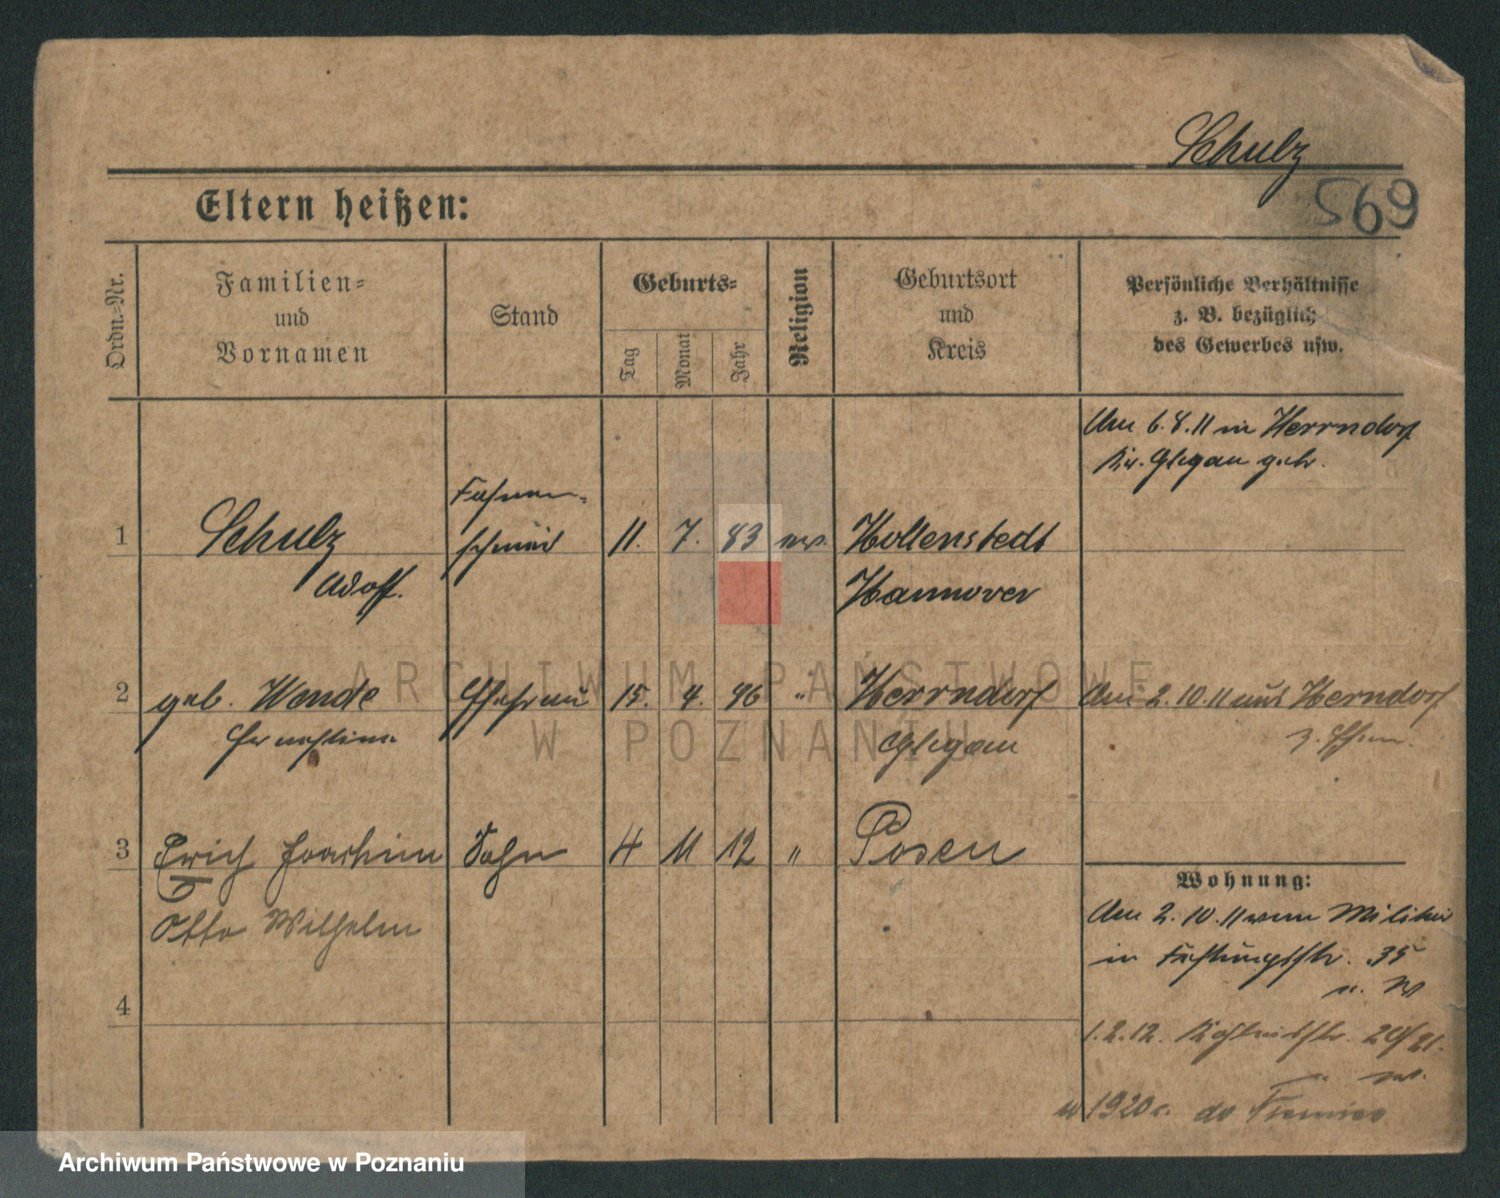 Schulz
569
Eltern heißen:
Ordn.-Nr.
Familien-
und
Vornamen
Stand
Geburts-
Tag
Monat
Jahr
Religion
Geburtsort
und
Kreis
Persönliche Verhältnisse
z. B. bezüglich
des Gewerbes usw.
Am 6.8.11 in Herrndorf
Kr. Glogau geh.
1 Schulz Fahnen-
schmied 11. 7. 83 ev. Hollenstedt
Adolf. Hannover
2 geb. Wende Ehefrau 15. 4. 86 " Herrndorf Am 2.10.11 aus Herndorf
Ernestine Glogau z. Ehem.
3 Erich Joachim Sohn 4 11 12 " Posen
Otto Wilhelm
4
Wohnung:
Am 2.10.11 vom Militär
in Festungsstr. 35
1.2.12. 20/21.
1920 do
ARCHIWUM PAŃSTWOWE
W POZNANIU
Archiwum Państwowe w Poznaniu